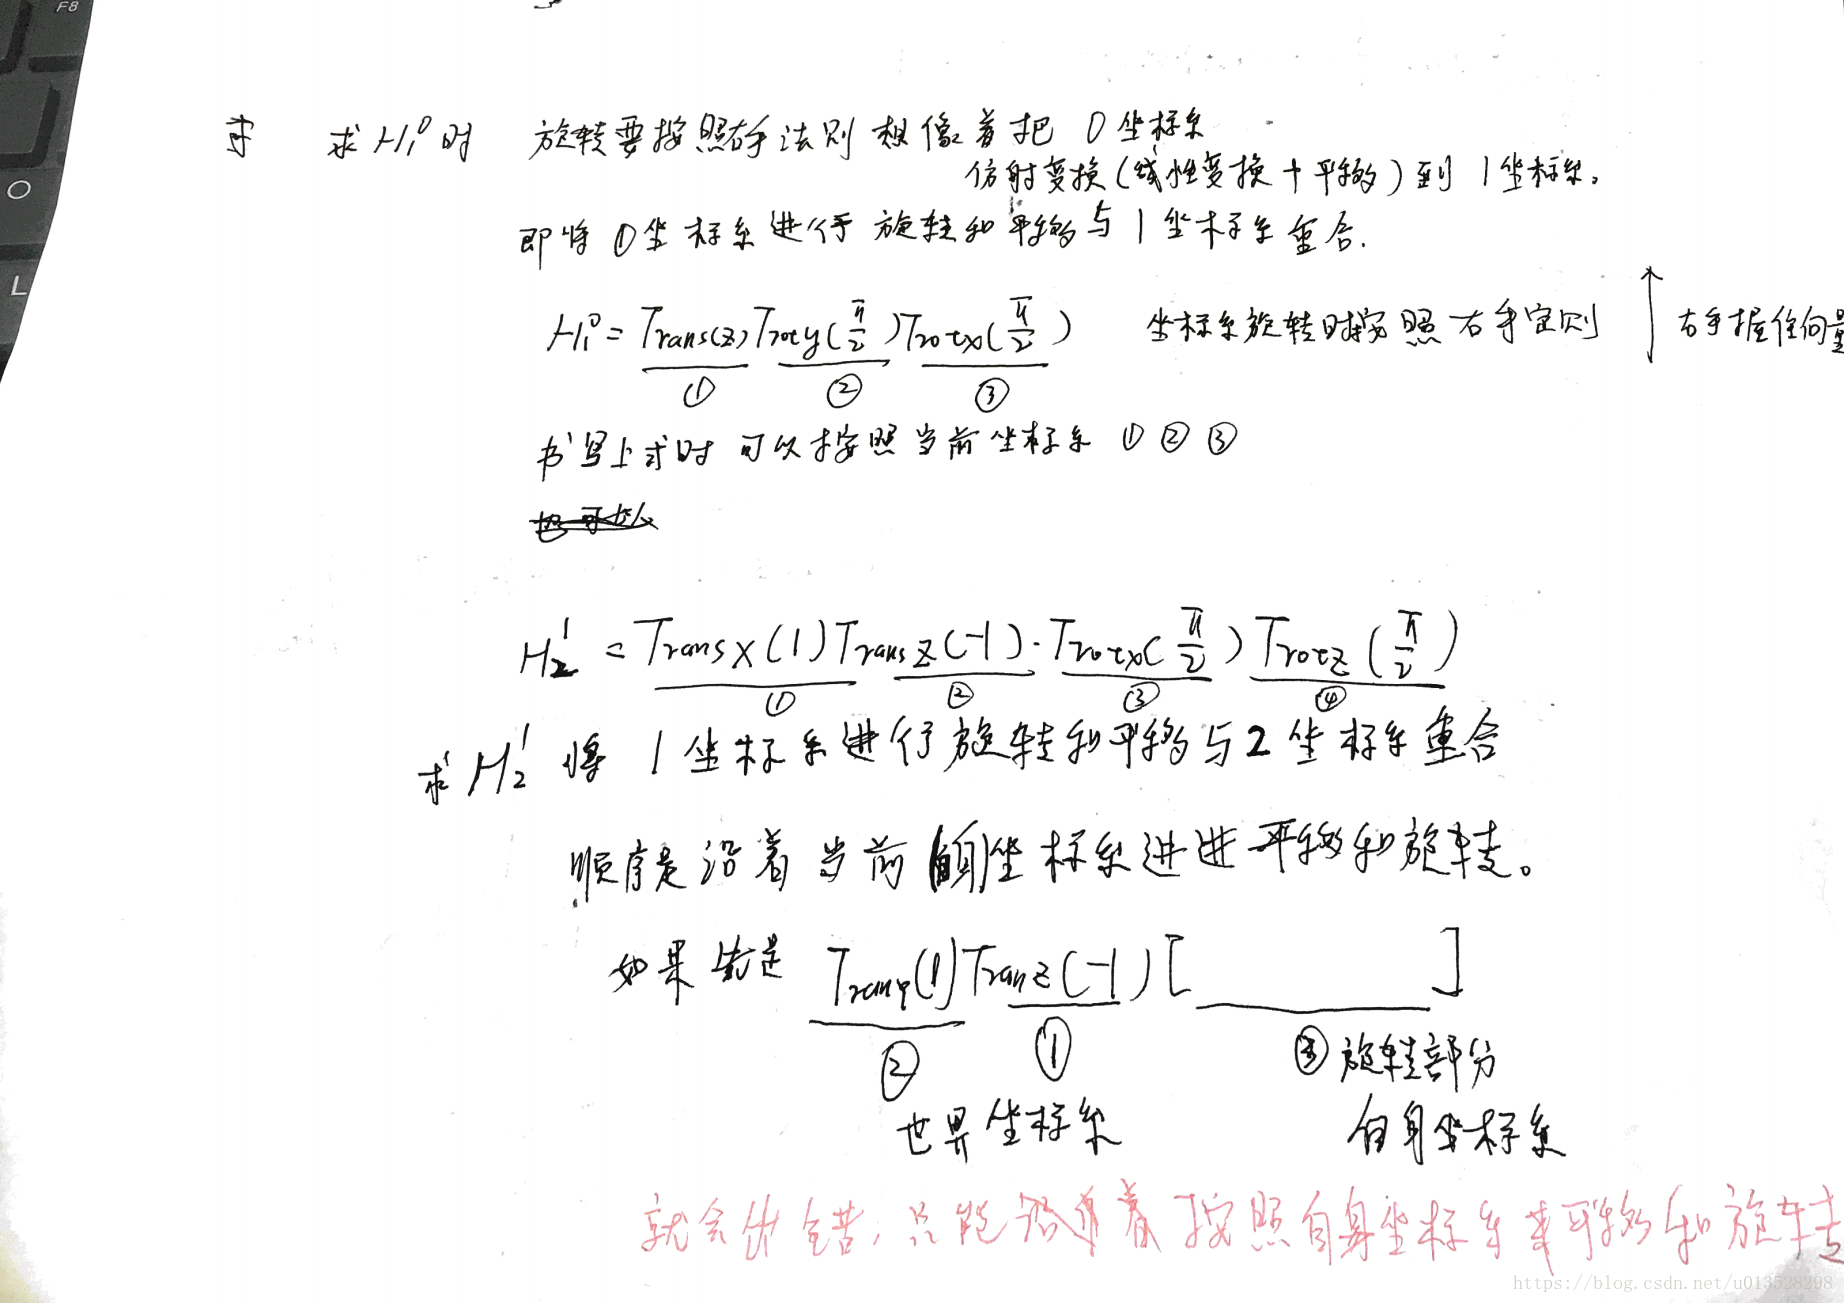 F8
O
L
求 求 H₁⁰ 时 旋转要按照右手法则想像着把 0 坐标系
仿射变换(线性变换+平移)到 1 坐标系。
即将 0 坐标系进行旋转和平移与 1 坐标系重合.
H₁⁰ = Trans(z) Troty(π/2) Trotx(π/2) 坐标系旋转时按照右手定则 ↑ 右手握住向量
① ② ③
书写上式时可以按照当前坐标系 ① ② ③
也可以
H₂¹ = Transx(1) Transz(-1) · Trotx(π/2) Trotz(π/2)
① ② ③ ④
求 H₂¹ 将 1 坐标系进行旋转和平移与 2 坐标系重合
顺序是沿着当前 自身坐标系进进平移和旋转。
如果先是 Trany(1) Tranz(-1) [ ]
② ① ③ 旋转部分
世界坐标系 自身坐标系
就会出错,只能沿着按照自身坐标系来平移和旋转
https://blog.csdn.net/u013528298